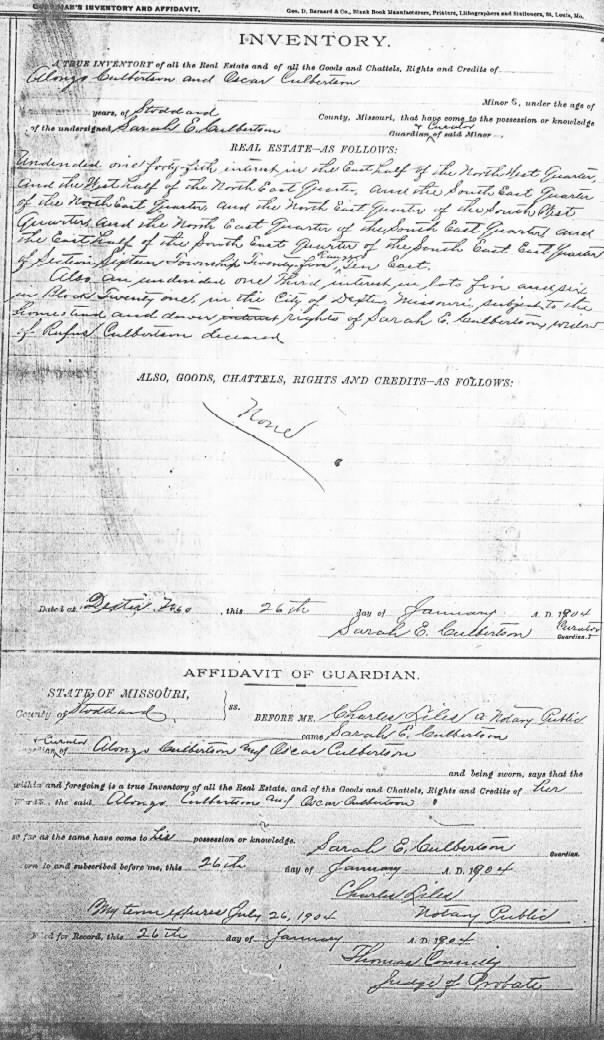 GUARDIAN'S INVENTORY AND AFFIDAVIT.
Geo. D. Barnard & Co., Blank Book Manufacturers, Printers, Lithographers and Stationers, St. Louis, Mo.
INVENTORY.
A TRUE INVENTORY of all the Real Estate and of all the Goods and Chattels, Rights and Credits of
Alonzo Culbertson and Oscar Culbertson
Minors, under the age of
years, of Stoddard County, Missouri, that have come to the possession or knowledge
of the undersigned Sarah E. Culbertson Guardian & Curator of said Minor
REAL ESTATE—AS FOLLOWS:
Undivided one forty fifth interest in the East half of the North West Quarter,
and the West half of the North East Quarter, and the South East Quarter
of the North East Quarter, and the North East Quarter of the South West
Quarter, and the North East Quarter of the South East Quarter, and
the East half of the South East Quarter of the South East East Quarter
of Section Sixteen Township Twenty Range Ten East.
Also an undivided one third interest in lots five and six
in Block Twenty one, in the City of Dexter, Missouri, subject to the
Homestead and dower interest rights of Sarah E. Culbertson, widow
of Rufus Culbertson deceased
ALSO, GOODS, CHATTELS, RIGHTS AND CREDITS—AS FOLLOWS:
None
Dated at Dexter Mo , this 26th day of January A. D. 1904
Sarah E. Culbertson Curator
Guardian.
AFFIDAVIT OF GUARDIAN.
STATE OF MISSOURI,
County of Stoddard ss. BEFORE ME, Charles Liles a Notary Public
came Sarah E. Culbertson
& Curator of Alonzo Culbertson and Oscar Culbertson
and being sworn, says that the
within and foregoing is a true Inventory of all the Real Estate, and of the Goods and Chattels, Rights and Credits of her
Wards, the said Alonzo Culbertson and Oscar Culbertson
so far as the same have come to his possession or knowledge.
Sarah E. Culbertson Guardian.
Sworn to and subscribed before me, this 26th day of January A. D. 1904
Charles Liles
My term expires July 26, 1904 Notary Public
Filed for Record, this 26th day of January A. D. 1904
Thomas Connelly
Judge of Probate